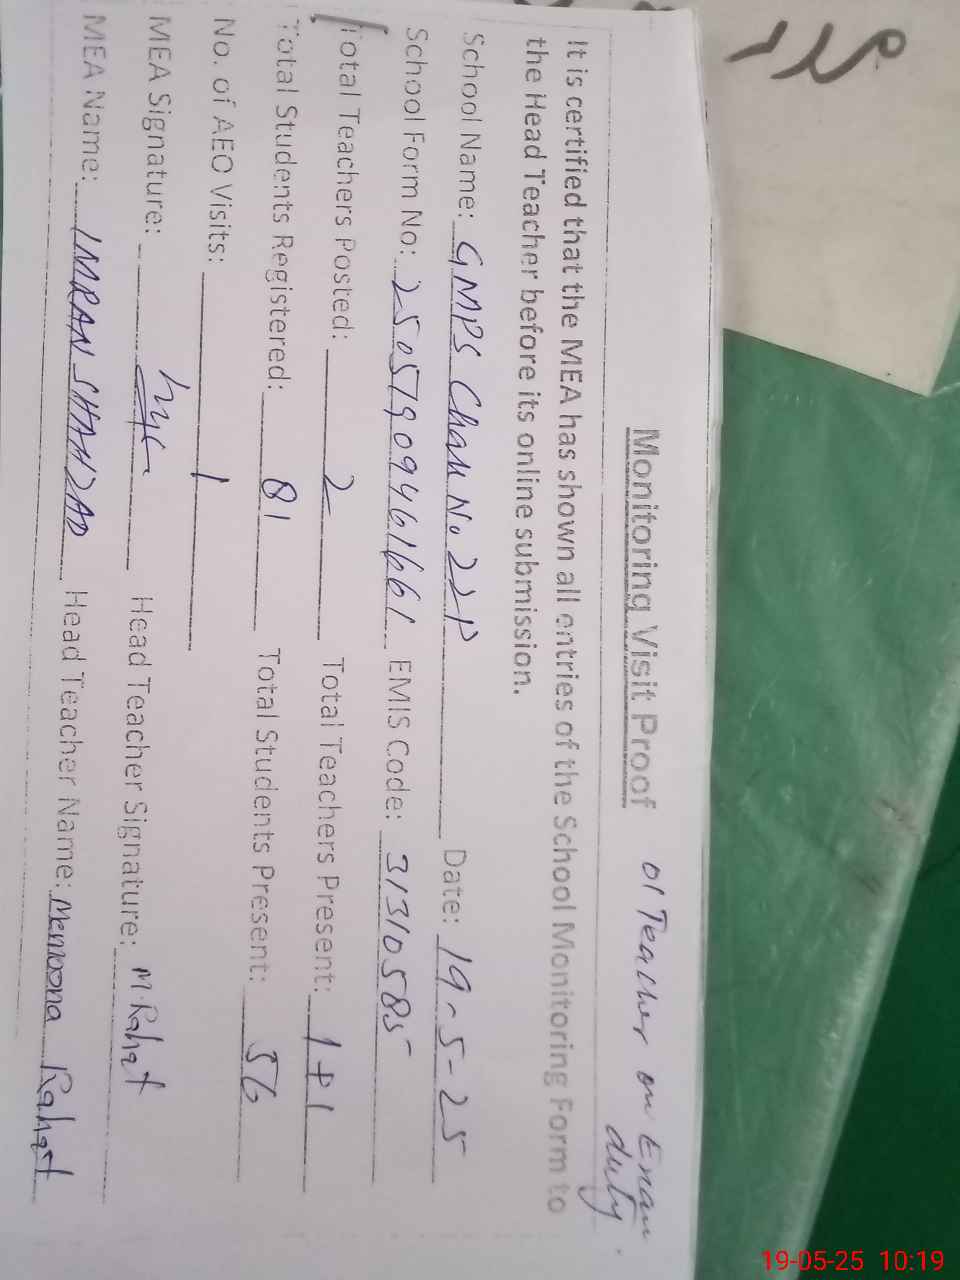 Monitoring Visit Proof 01 Teacher on Exam duty.
It is certified that the MEA has shown all entries of the School Monitoring Form to
the Head Teacher before its online submission.
School Name: GMPS Chak No. 22P Date: 19-5-25
School Form No: 25051909461661 EMIS Code: 31310585
Total Teachers Posted: 2 Total Teachers Present: 1+1
Total Students Registered: 81 Total Students Present: 56
No. of AEO Visits: 1
MEA Signature: Head Teacher Signature: M.Rahat
MEA Name: IMRAN SHAHZAD Head Teacher Name: Memoona Rahat
19-05-25 10:19